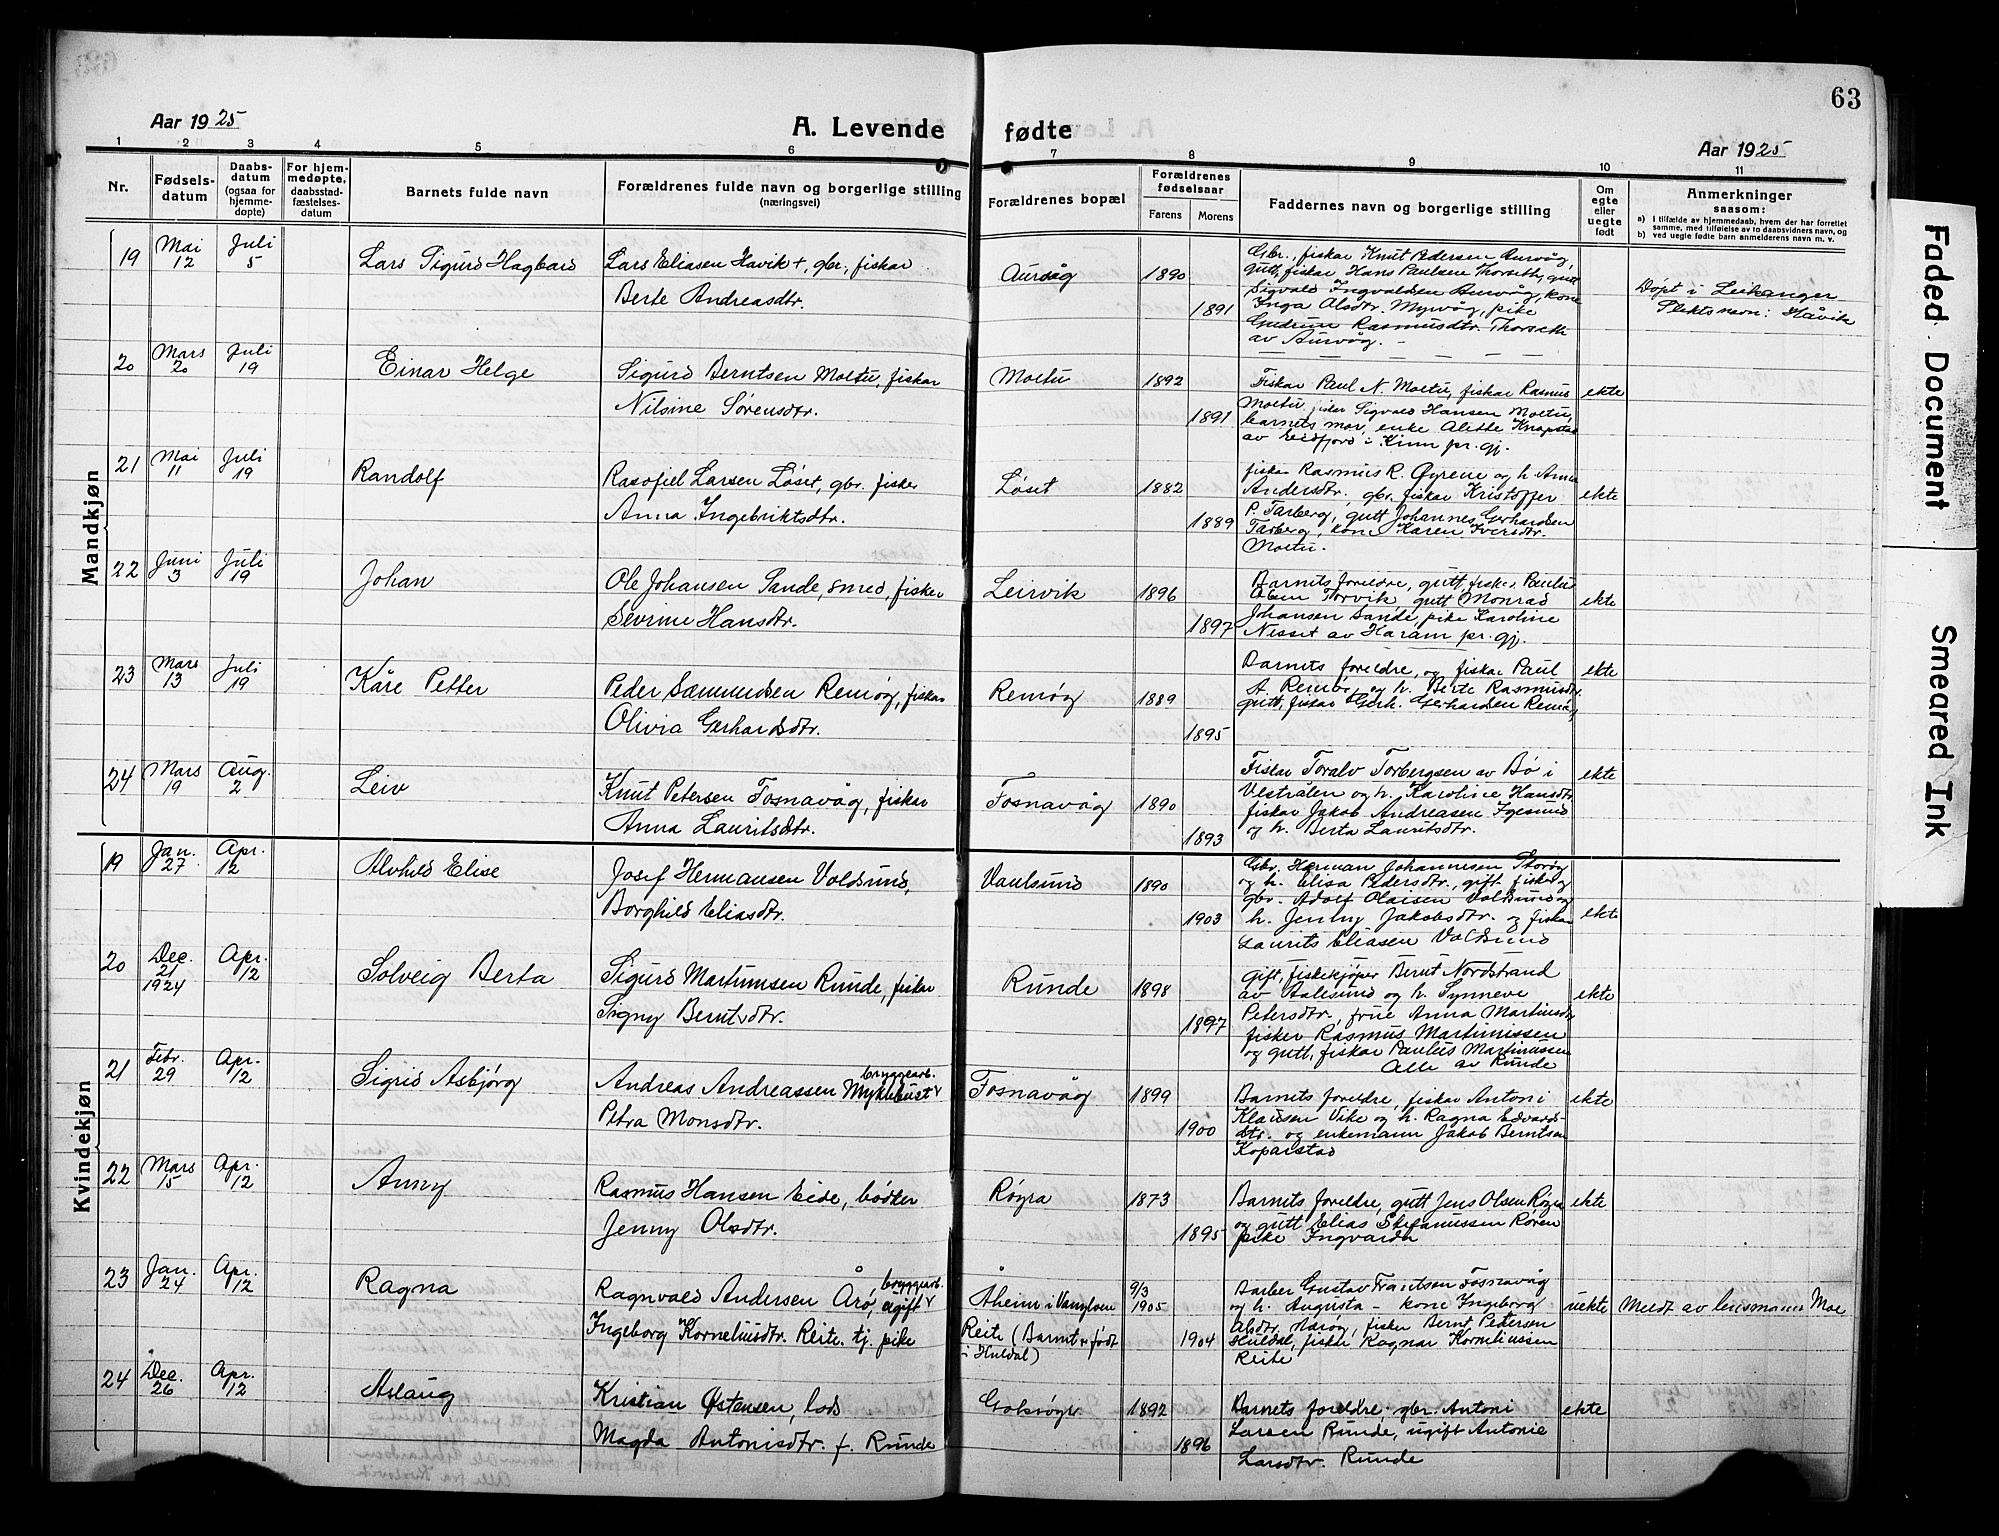 63
Aar 1925
A. Levende fødte
Aar 1925
1 2 3 4 5 6 7 8 9 10 11
Nr.
Fødselsdatum
Daabsdatum (ogsaa for hjemmedøpte)
For hjemmedøpte, daabsstadfæstelsesdatum
Barnets fulde navn
Forældrenes fulde navn og borgerlige stilling (næringsvei)
Forældrenes bopæl
Forældrenes fødselsaar
Farens Morens
Faddernes navn og borgerlige stilling
Om egte eller uegte født
Anmerkninger saasom:
a) i tilfælde av hjemmedaab, hvem der har forrettet samme, med tilføielse av to daabsvidners navn, og
b) ved uegte fødte barn anmelderens navn m. v.
Mandkjøn
19 Mai 12 Juli 5 Lars Sigurd Hagbard
Lars Eliasen Havik +, gbr., fiskar
Berte Andreasdtr.
Aurvåg 1890 1891
Gbr., fiskar Knut Pedersen Aurvåg,
gutt, fiskar Hans Paulsen Thorseth, gutt
Sigvald Ingvaldsen Aurvåg, kone
Inga Alsdtr. Myrvåg, pike
Gudrun Rasmusdtr. Thorseth
av Aurvåg.
Døpt i Leikanger
Slektsnavn: Håvik
20 Mars 20 Juli 19 Einar Helge
Sigurd Berntsen Moltu, fiskar
Nilsine Sørensdtr.
Moltu 1892 1891
Fiskar Paul N. Moltu, fiskar Rasmus
Moltu, fisker Sigvald Hansen Moltu,
barnets mor, enke Alette Knapstad
av Eidfjord i Kinn pr.gj.
ekte
21 Mai 11 Juli 19 Randolf
Rasofiel Larsen Løset, gbr. fisker
Anna Ingebriktsdtr.
Løset 1882 1889
fiskar Rasmus R. Øyrene og h. Anna
Andersdtr. gbr. fiskar Kristoffer
P. Tarberg, gutt Johannes Gerhardsen
Tarberg, kone Karen Iversdtr.
Moltu.
ekte
22 Juni 3 Juli 19 Johan
Ole Johansen Sande, smed, fisker
Sevrine Hansdtr.
Leirvik 1896 1897
Barnets foreldre, gutt, fisker Paulus
Olsen Torvik, gutt Monrad
Johansen Sande, pike Karoline
Nesset av Haram pr. gj.
ekte
23 Mars 13 Juli 19 Kåre Petter
Peder Sæmundsen Remøy, fiskar
Olivia Gerhardsdtr.
Remøy 1889 1895
Barnets foreldre, og fiskar Paul
A. Remøy og h. Berte Rasmusdtr.
gutt, fiskar Gerh. Gerhardsen Remøy
ekte
24 Mars 19 Aug. 2 Leiv
Knut Petersen Fosnavåg, fiskar
Anna Lauritsdtr.
Fosnavåg 1890 1893
Fiskar Toralv Torbergsen av Bø i
Vestrålen og h. Karoline Hansdtr.
fiskar Jakob Andreasen Igesund
og h. Berta Lauritsdtr.
ekte
Kvindekjøn
19 Jan. 27 Apr. 12 Alvhild Elise
Josef Hermansen Voldsund,
Borghild Eliasdtr.
Vaulsund 1890 1903
Gbr. Herman Johannesen Storøy
og h. Elisa Pedersdtr., gift fisker
gbr. Adolf Olaisen Voldsund og
h. Jenny Jakobsdtr. og fiskar
Laurits Eliasen Voldsund
ekte
20 Dec. 21 1924 Apr. 12 Solveig Berta
Sigurd Martinusen Runde, fiskar
Signy Berntsdtr.
Runde 1898 1897
gift, fiskekjøper Bernt Nordstrand
av Aalesund og h. Synneve
Petersdtr, frue Anna Martinsdtr
fisker Rasmus Martinussen
og gutt, fiskar Paulus Martinussen
Alle av Runde
ekte
21 Febr. 29 Apr. 12 Sigrid Asbjørg
bryggearb.
Andreas Andreassen Myklebust
Petra Monsdtr.
Fosnavåg 1899 1900
Barnets foreldre, fiskar Antoni
Klausen Vike og h. Ragna Edvardsdtr.
og enkemann Jakob Berntsen
Koparstad
ekte
22 Mars 15 Apr. 12 Anny
Rasmus Hansen Eide, bødker
Jenny Olsdtr.
Røyra 1873 1895
Barnets foreldre, gutt Jens Olsen Røyra
og gutt Elias Stefanussen Røren
pike Ingvarda
ekte
23 Jan. 24 Apr. 12 Ragna
bryggearb.
Ragnvald Andersen Årø, ugift
Ingeborg Korneliusdtr. Reite. tj. pike
Åheim i Vanylven
Reite (Barnet er født
i Huldal)
9/3 1905 1904
Barber Gustav Frantsen Fosnavåg
og h. Augusta – kone Ingeborg
Olsdtr. Nærøy, fisker Bernt Pedersen
Huldal, fiskar Ragnar Korneliussen
Reite
uekte
Meldt av lensmann Moe
24 Dec. 26 Apr. 12 Aslaug
Kristian Østensen, lods
Magda Antonisdtr. f. Runde
1892 1896
Barnets foreldre, gbr. Antoni
Larsen Runde, ugift Antonie
Larsdtr. Runde
ekte
Faded Document
Smeared Ink